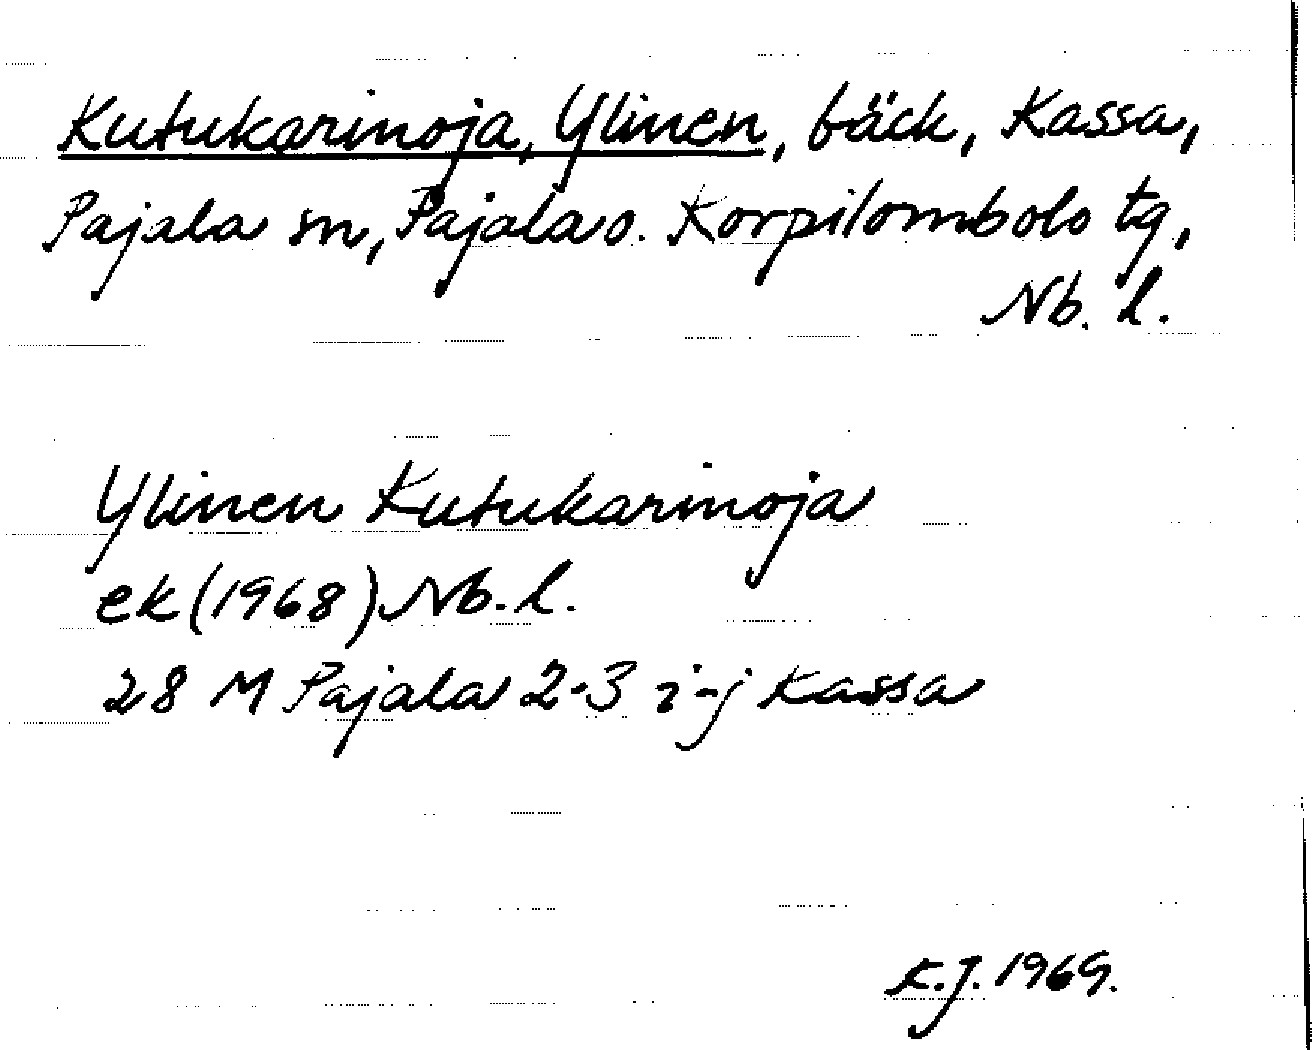 Kutukarinoja, Ylinen, bäck, Kassa,
Pajala sn, Pajala o. Korpilombolo tg,
Nb. l.
Ylinen Kutukarinoja
ek (1968) Nb. l.
28 M Pajala 2-3 i-j Kassa
K.J. 1969.